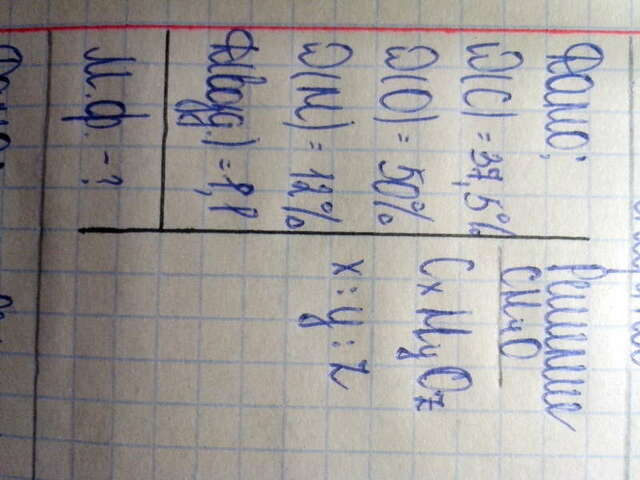 Дано:
W(C) = 37,5%
W(O) = 50%
W(H) = 12%
D(возд.) = 1,1
М.ф. - ?
Решение
CHyO
CxHyOz
x : y : z